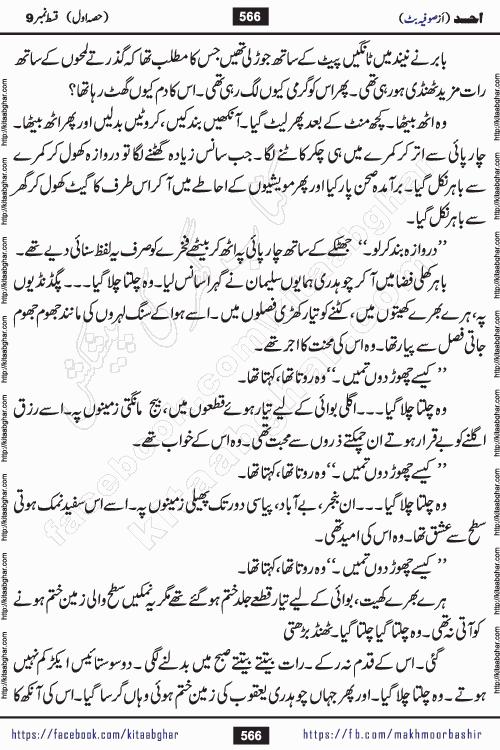 احمد (از صوفیہ بٹ)
566
(حصہ اول) قسط نمبر 9
بابر نے نیند میں ٹانگیں پیٹ کے ساتھ جوڑ لی تھیں جس کا مطلب تھا کہ گذرتے لمحوں کے ساتھ
رات مزید ٹھنڈی ہو رہی تھی۔ پھر اس کو گرمی کیوں لگ رہی تھی۔ اس کا دم کیوں گھٹ رہا تھا؟
وہ اٹھ بیٹھا۔ کچھ منٹ کے بعد پھر لیٹ گیا۔ آنکھیں بند کیں، کروٹیں بدلیں اور پھر اٹھ بیٹھا۔
چارپائی سے اتر کر کمرے میں ہی چکر کاٹنے لگا۔ جب سانس زیادہ گھٹنے لگا تو دروازہ کھول کر کمرے
سے باہر نکل گیا۔ برآمدہ صحن پار کیا اور پھر مویشیوں کے احاطے میں آ کر اس طرف کا گیٹ کھول کر گھر
سے باہر نکل گیا۔
’’دروازہ بند کر لو۔‘‘ جھٹکے کے ساتھ چارپائی پہ اٹھ کر بیٹھے فخرے کو صرف یہ لفظ سنائی دیے تھے۔
باہر کھلی فضا میں آ کر چوہدری ہمایوں سلیمان نے گہرا سانس لیا۔ وہ چلتا چلا گیا۔۔۔ پگڈنڈیوں
پہ، ہرے بھرے کھیتوں میں، کٹنے کو تیار کھڑی فصلوں میں۔ اسے ہوا کے سنگ لہروں کی مانند جھوم جھوم
جاتی فصل سے پیار تھا۔ وہ اس کی محنت کا اجر تھے۔
’’کیسے چھوڑ دوں تمہیں۔‘‘ وہ روتا تھا، کہتا تھا۔
وہ چلتا چلا گیا۔۔۔ اگلی بوائی کے لیے تیار ہوئے قطعوں میں، بیج مانگتی زمینوں پہ۔ اسے رزق
اگلنے کو بے قرار ہوتے ان چمکتے ذروں سے محبت تھی۔ وہ اس کے خواب تھے۔
’’کیسے چھوڑ دوں تمہیں۔‘‘ وہ روتا تھا، کہتا تھا۔
وہ چلتا چلا گیا۔۔۔ ان بنجر، بے آباد، پیاسی دور تک پھیلی زمینوں پہ۔ اسے اس سفید نمک ہوتی
سطح سے عشق تھا۔ وہ اس کی امید تھی۔
’’کیسے چھوڑ دوں تمہیں۔‘‘ وہ روتا تھا، کہتا تھا۔
ہرے بھرے کھیت، بوائی کے لیے تیار قطعے جلد ختم ہو گئے تھے مگر یہ نمکیں سطح والی زمین ختم ہونے
کو آتی نہ تھی۔ وہ چلتا گیا چلتا گیا۔ ٹھنڈ بڑھتی
گئی۔ اس کے قدم نہ رکے۔ رات بیتتے بیتتے صبح میں بدلنے لگی۔ دو سو ستائیس ایکڑ کم نہیں
ہوتے۔ وہ چلتا گیا۔ اور پھر جہاں چوہدری یعقوب کی زمین ختم ہوئی وہاں گر سا گیا۔ اس کی آنکھ کا
https://facebook.com/kitaabghar
566
https://fb.com/makhmoorbashir
http://kitaabghar.com